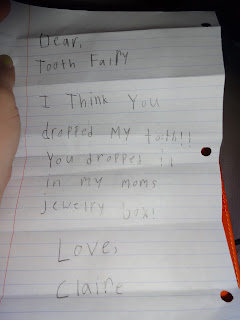 Dear,
Tooth Fairy
I Think You
dropped My tuth!!
You dropped it
in my moms
jewelry box!
Love,
Claire